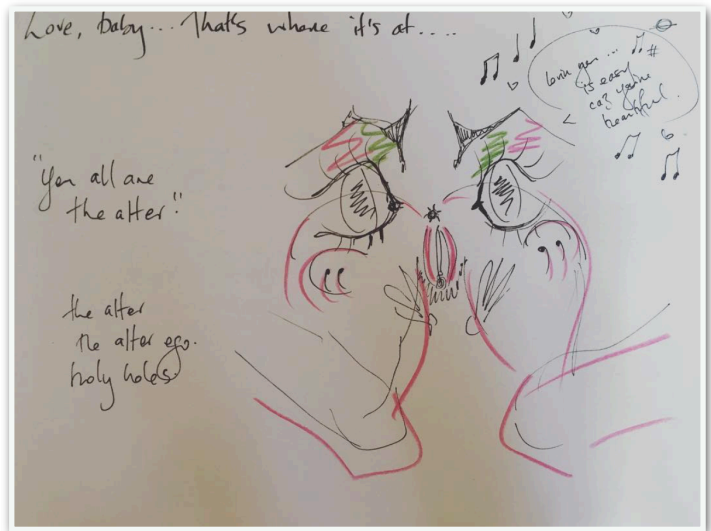 Love, baby... That's where it's at....
lovin you...
is easy
caz you're
beautiful.
"You all are
the alter."
the alter
the alter ego.
holy holes.